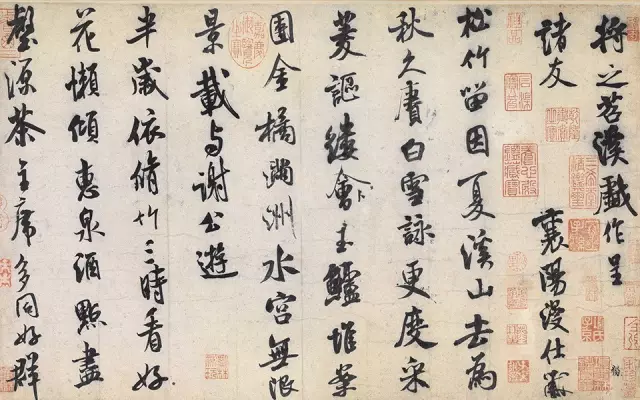 将之苕溪戲作呈
諸友
襄陽漫仕黻
松竹留因夏溪山去為
秋久賡白雪詠更度采
菱謳縷會玉鱸堆案
團金橘滿洲水宮無限
景載与謝公遊
半歲依脩竹三時看好
花懶傾惠泉酒點盡
壑源茶主席多同好群